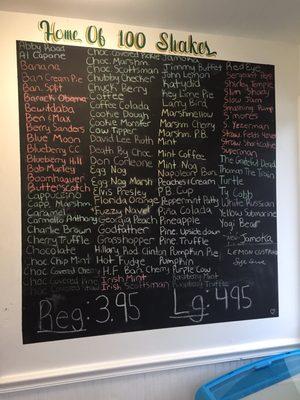 Home Of 100 Shakes
Abby Road
Al Capone
Banana
Ban. Cream Pie
Ban. Split
Barack Obama
Bewitdaba
Ben & Max
Berry Sanders
Blue Moon
Blueberry C.C.
Blueberry Hill
Bob Marley
Boomhauer
Butterscotch
Cappuccino
Capp. Marshm.
Caramel
Carmellio Anthony
Charlie Brown
Cherry Truffle
Chocolate
Choc Chip Mint
Choc Covered Cherry
Choc Covered
Choc Covered
Choc. Marshm.
Choc Scottsman
Chubby Checker
Chuck Berry
Coffee
Coffee Colada
Cookie Dough
Cookie Monster
Cow Tipper
David Lee Ruth
Death By Choc.
Don Corleone
Egg Nog
Egg Nog Marsh
Elvis Presley
Florida Orange
Fuzzy Navel
Georgia Peach
Godfather
Grasshopper
Hillary Rod Clinton
Hot Fudge
H.F. Ban. Cherry
Irish Mint
Irish Scottsman
Jamoka
Jimmy Buffet
John Lemon
Katydid
Key Lime Pie
Larry Bird
Marshmellow
Marshm. Cherry
Marshm. P.B.
Mint
Mint Coffee
Mint Nog
Peaches & Cream
Peppermint Patti
P.B. Cup
Piña Colada
Pineapple
Pine. Upside down
Pine Truffle
Pumpkin Pie
Pumpkin
Purple Cow
Raspberry Mint
Raspberry Truffle
Red Eye
Sergeant Pepp.
Shirley Temple
Slim Shady
Slow Jam
Smashing Pump.
S'mores
S. Pegerman
Straw. Shortcake
Superman
The Grateful Dead
Thomas The Train
Turtle
Ty Cobb
White Russian
Yellow Submarine
Yogi Bear
Jamoka
Lemon Custard
Reg: 3.95
Lg: 4.95